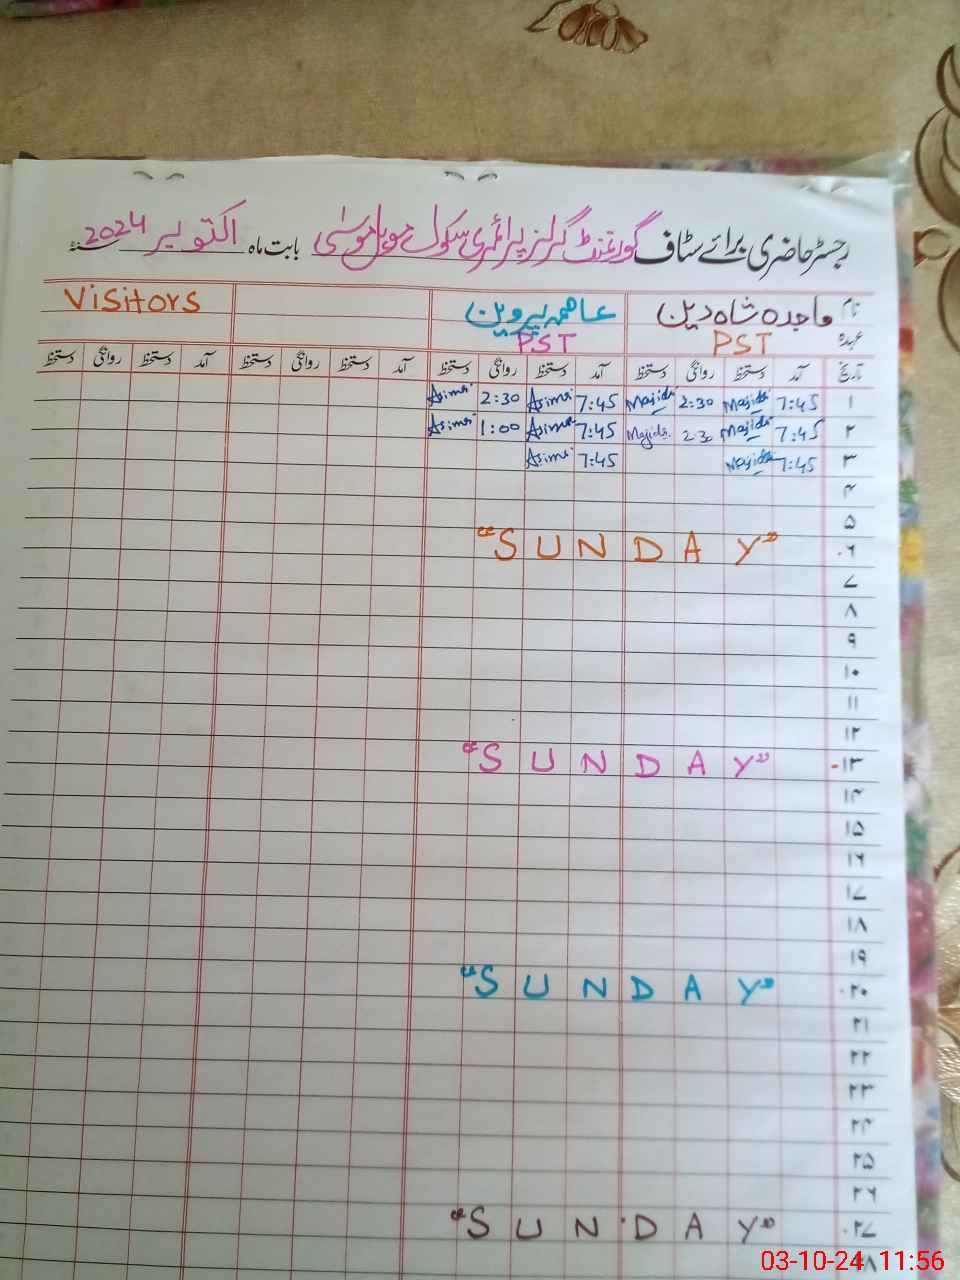 رجسٹر حاضری برائے سٹاف گورنمنٹ گرلز پرائمری سکول موسیٰ بابت ماہ اکتوبر 2024 سنہ
نام واجدہ شاہ دین عاصمہ پروین Visitors
عہدہ PST PST
تاریخ آمد دستخط روانگی دستخط آمد دستخط روانگی دستخط آمد دستخط روانگی دستخط آمد دستخط روانگی دستخط
۱ 7:45 Majida 2:30 Majida 7:45 Asima 2:30 Asima
۲ 7:45 Majida 2:30 Majida 7:45 Asima 1:00 Asima
۳ 7:45 Majida 7:45 Asima
۴
۵
۶ "SUNDAY"
۷
۸
۹
۱۰
۱۱
۱۲
۱۳ "SUNDAY"
۱۴
۱۵
۱۶
۱۷
۱۸
۱۹
۲۰ "SUNDAY"
۲۱
۲۲
۲۳
۲۴
۲۵
۲۶
۲۷ "SUNDAY"
۲۸
03-10-24 11:56